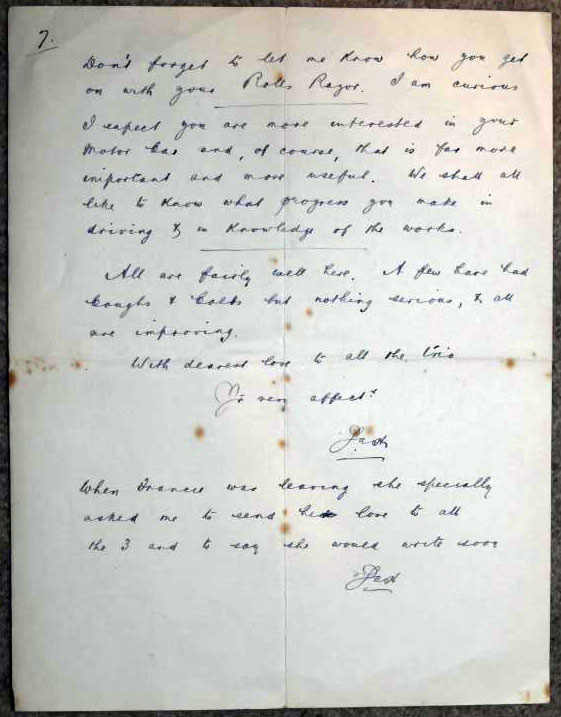 7.
Don't forget to let me know how you get
on with your Rolls Razor. I am curious
I expect you are more interested in your
Motor Car and, of course, that is far more
important and more useful. We shall all
like to know what progress you make in
driving & in knowledge of the works.
All are fairly well here. A few have had
Coughs & Colds but nothing serious, & all
are improving.
With dearest love to all the trio
Yr very affect.
When Francie was leaving she specially
asked me to send her love to all
the 3 and to say she would write soon